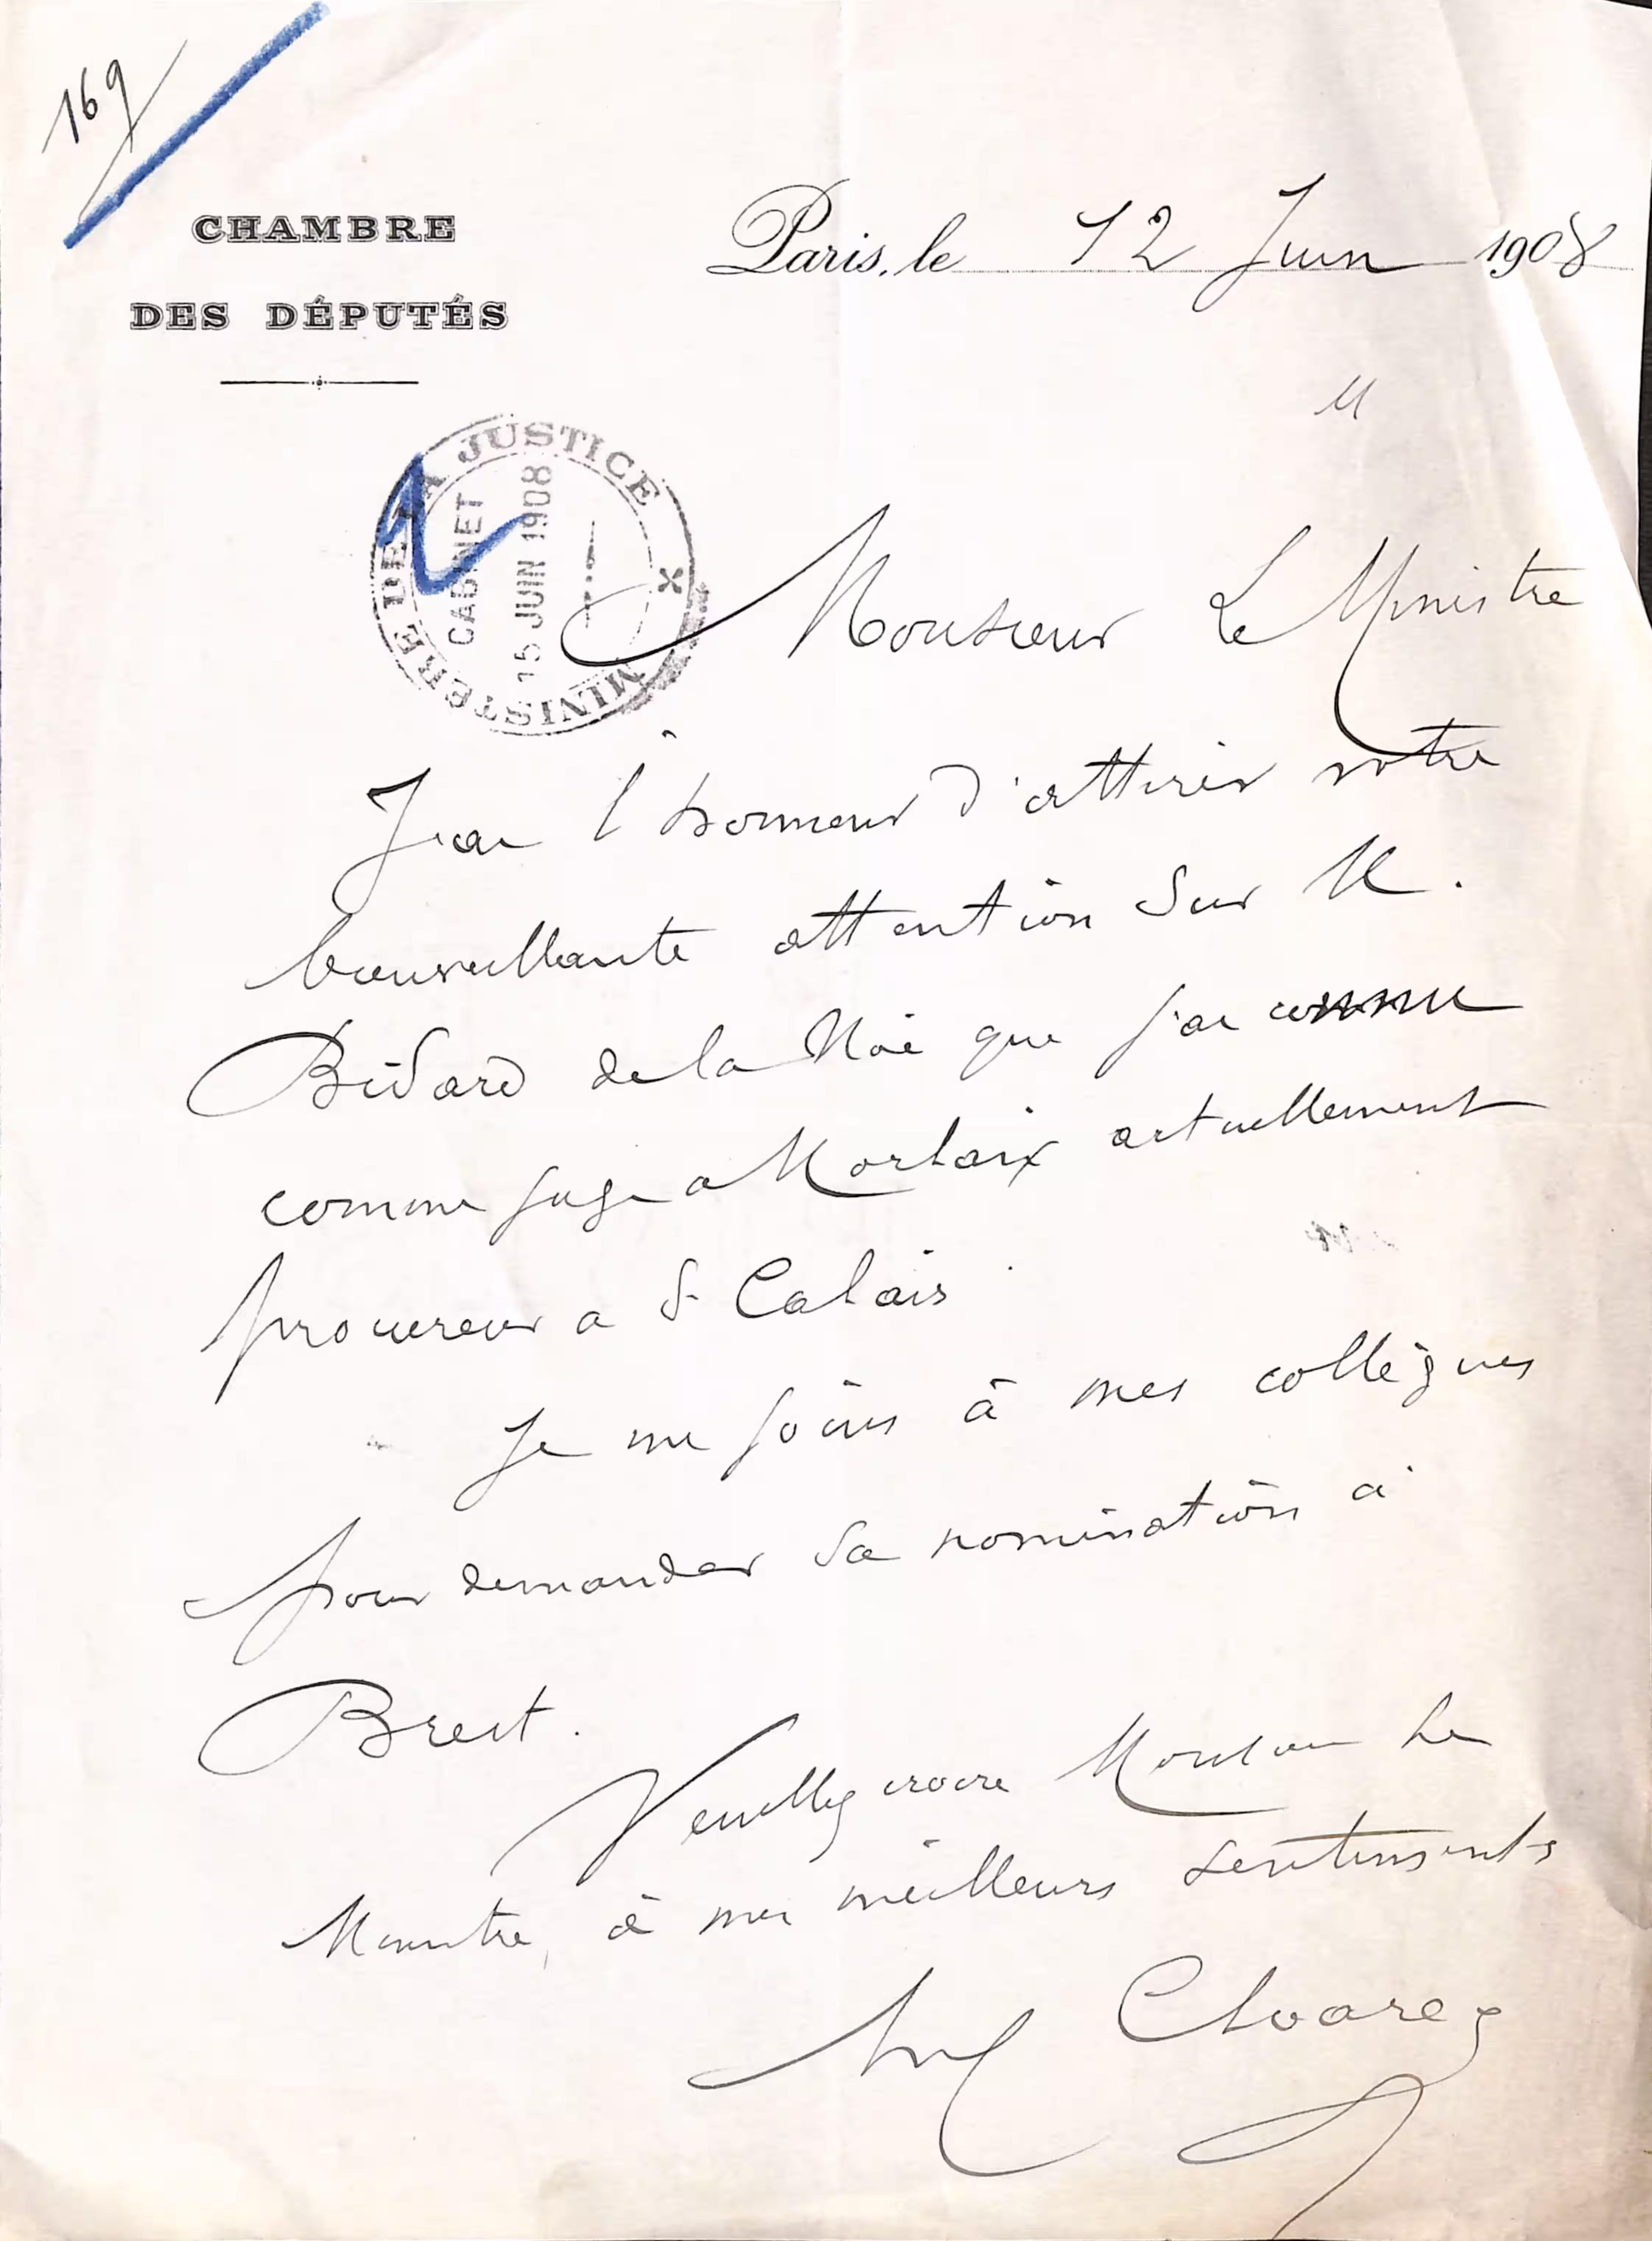 169
CHAMBRE
DES DÉPUTÉS
Paris, le 12 Juin 1908
MINISTERE DE LA JUSTICE
CABINET
15 JUIN 1908
Monsieur Le Ministre
J'ai l'honneur d'attirer votre
bienveillante attention sur M.
Bidard de la Noë que j'ai connu
comme juge a Morlaix actuellement
procureur a St Calais.
Je me joins à mes collègues
pour demander sa nomination à
Brest.
Veuillez croire Monsieur Le
Ministre, à mes meilleurs sentiments
Cloarec